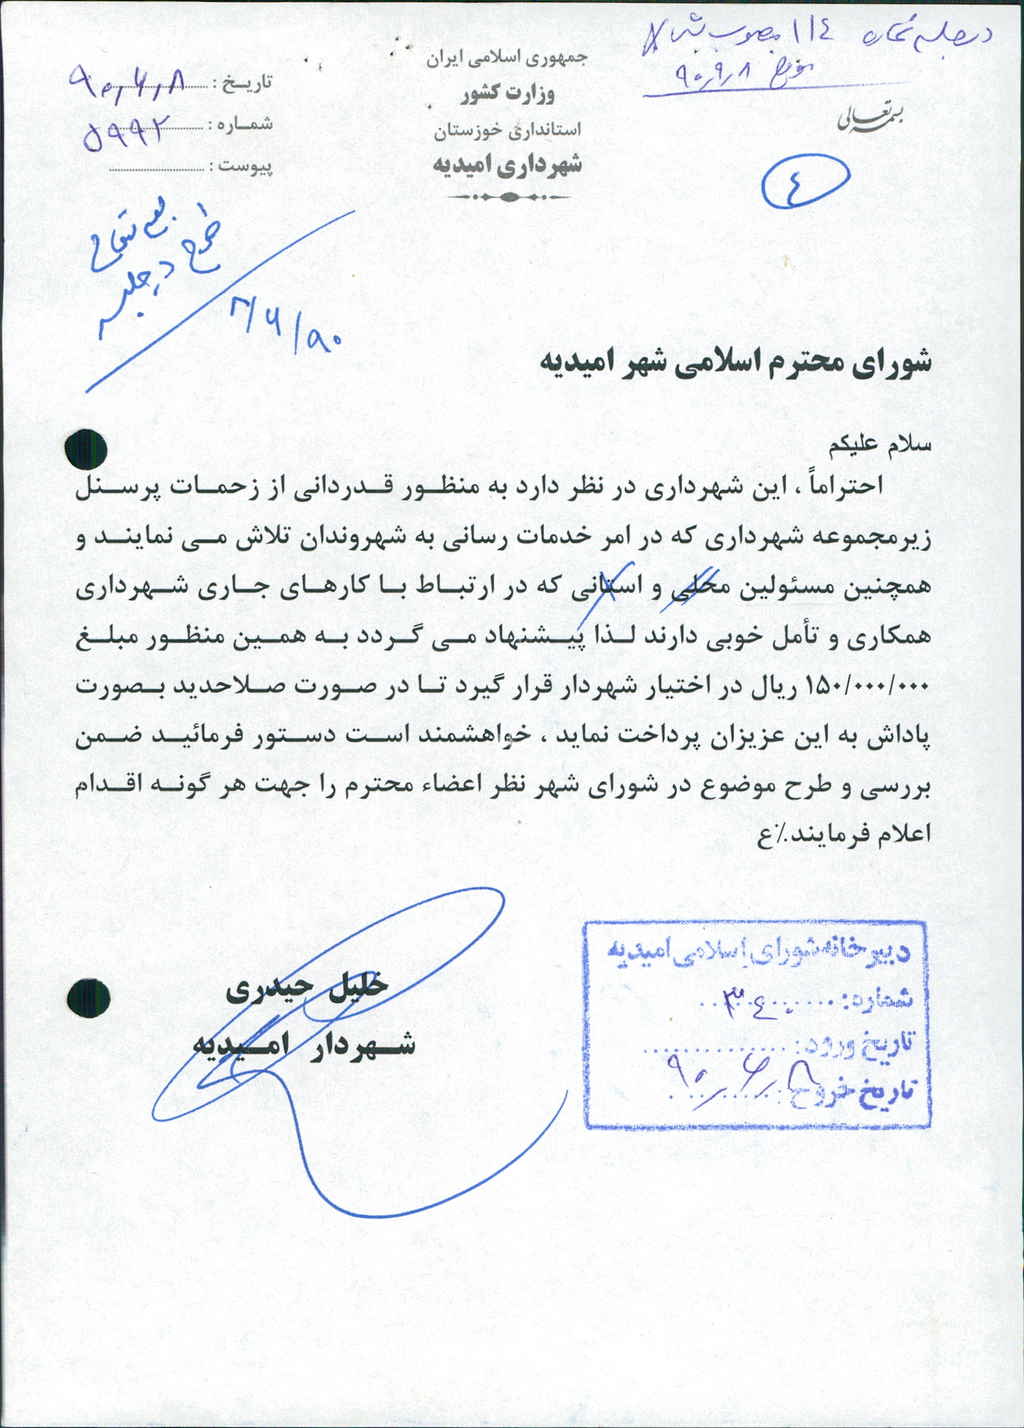 در جلسه شماره ۱۱۴ مصوب شد
مورخ ۹۰,۹,۸
بسمه تعالی
۴
جمهوری اسلامی ایران
وزارت کشور
استانداری خوزستان
شهرداری امیدیه
تاریخ : ۹۰,۶,۸
شماره : ۵۹۹۲
پیوست :
طرح در جلسه
شورای محترم اسلامی شهر امیدیه
سلام علیکم
احتراماً ، این شهرداری در نظر دارد به منظور قدردانی از زحمات پرسنل
زیرمجموعه شهرداری که در امر خدمات رسانی به شهروندان تلاش می نمایند و
همچنین مسئولین محلی و استانی که در ارتباط با کارهای جاری شهرداری
همکاری و تأمل خوبی دارند لذا پیشنهاد می گردد به همین منظور مبلغ
۱۵۰/۰۰۰/۰۰۰ ریال در اختیار شهردار قرار گیرد تا در صورت صلاحدید بصورت
پاداش به این عزیزان پرداخت نماید ، خواهشمند است دستور فرمائید ضمن
بررسی و طرح موضوع در شورای شهر نظر اعضاء محترم را جهت هر گونه اقدام
اعلام فرمایند٪ع
خلیل حیدری
شهردار امیدیه
دبیرخانه شورای اسلامی امیدیه
شماره: ۳۴۰
تاریخ ورود:
تاریخ خروج: ۹۰,۶,۸